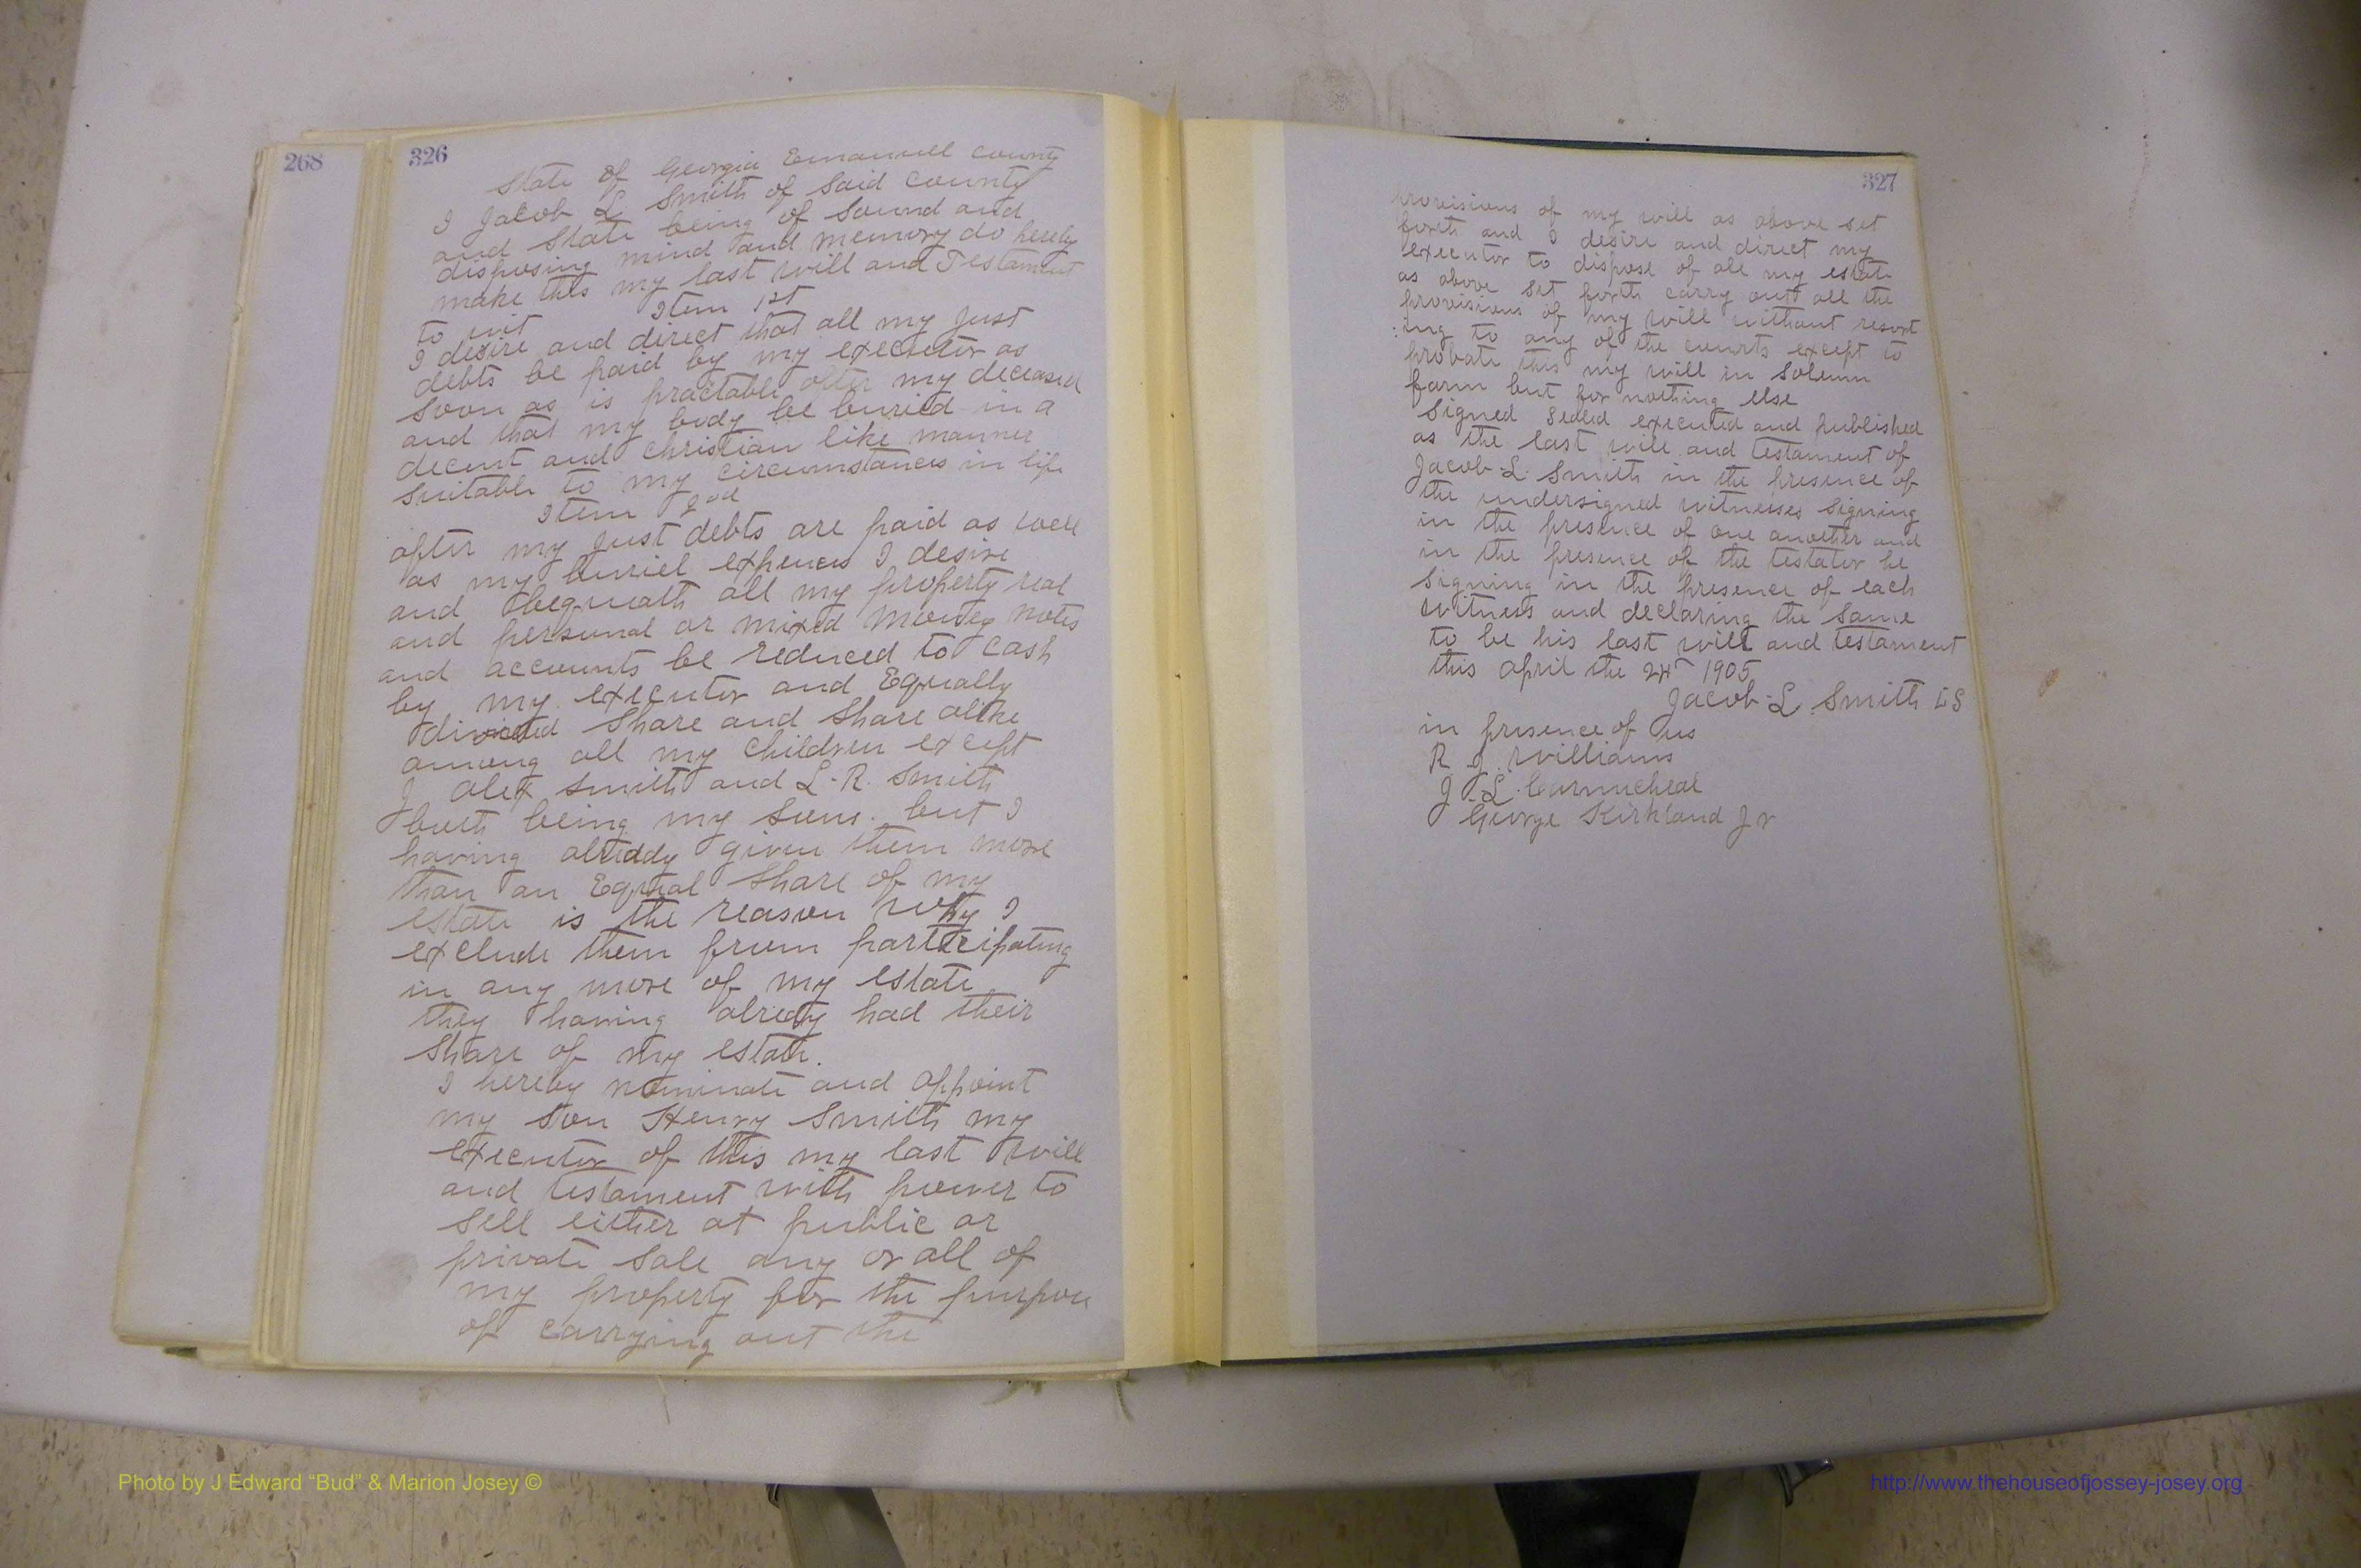 268
326
State of Georgia Emanuell county
I Jacob L. Smith of said county
and State being of sound and
disposing mind and memory do hereby
make this my last will and Testament
to wit Item 1st
I desire and direct that all my just
debts be paid by my executor as
soon as is practable after my deceased
and that my body be buried in a
decent and christian like manner
suitable to my circumstances in life
Item 2nd
after my just debts are paid as well
as my buriel expences I desire
and bequeath all my property real
and personal or mixed money notes
and accounts be reduced to cash
by my executor and Equally
divided share and share alike
among all my children except
J Alex Smith and L. R. Smith
both being my sons. but I
having alreddy given them more
than an Equal share of my
estate is the reason why I
exclude them from participating
in any more of my estate
they having alredy had their
share of my estate.
I hereby nominate and appoint
my son Henry Smith my
executor of this my last will
and testament with power to
sell either at public or
private sale any or all of
my property for the purpose
of carrying out the
327
provisions of my will as above set
forth and I desire and direct my
executor to dispose of all my estate
as above set forth carry out all the
provisions of my will without resort
:ing to any of the courts except to
probate this my will in solemn
form but for nothing else
Signed sealed executed and published
as the last will and testament of
Jacob L. Smith in the presence of
the undersigned witnesses signing
in the presence of one another and
in the presence of the testator he
signing in the presence of each
witness and declaring the same
to be his last will and testament
this april the 24th 1905
Jacob L. Smith LS
in presence of us
R J. Williams
J. L.
George Kirkland Jr
Photo by J Edward “Bud” & Marion Josey ©
http://www.thehouseofjossey-josey.org